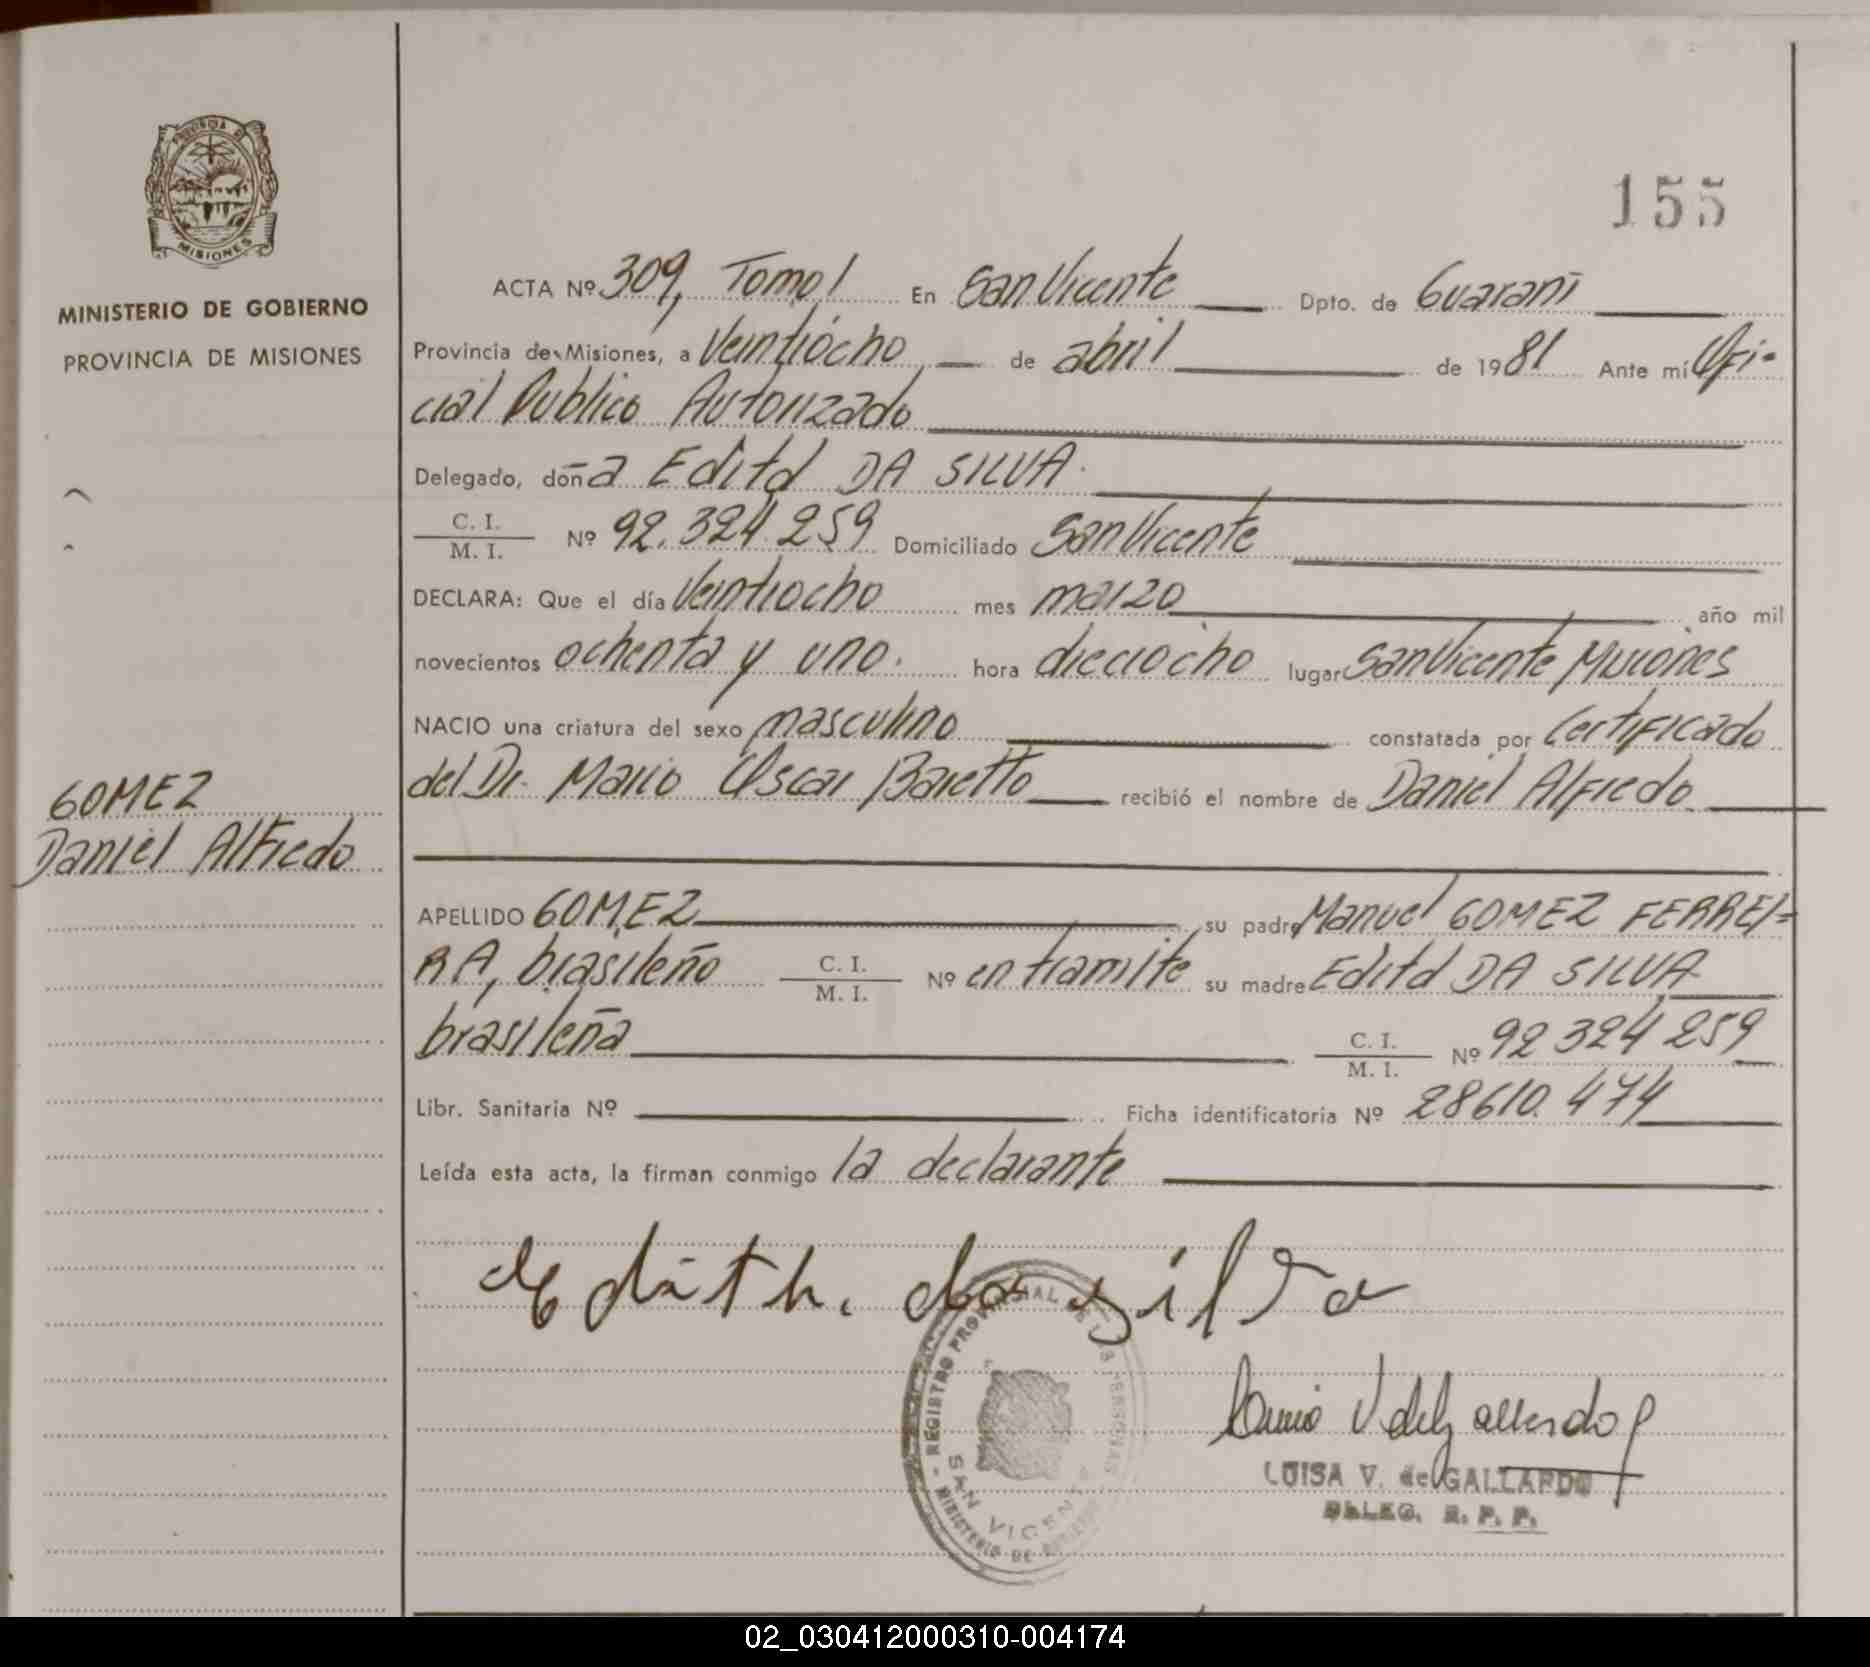 PROVINCIA DE
MISIONES
MINISTERIO DE GOBIERNO
PROVINCIA DE MISIONES
GOMEZ
Daniel Alfredo
155
ACTA Nº 309, Tomo I En San Vicente Dpto. de Guaraní
Provincia de Misiones, a Veintiocho de abril de 1981 Ante mí Ofi-
cial Publico Autorizado
Delegado, doña Editd DA SILVA.
C. I.
M. I. Nº 92.324.259 Domiciliado San Vicente
DECLARA: Que el día Veintiocho mes marzo año mil
novecientos ochenta y uno. hora dieciocho lugar San Vicente Misiones
NACIO una criatura del sexo masculino constatada por Certificado
del Dr. Mario Oscar Baretto recibió el nombre de Daniel Alfredo
APELLIDO GOMEZ su padre Manuel GOMEZ FERREI=
RA, brasileño C. I. M. I. Nº en tramite su madre Editd DA SILVA
brasileña C. I. M. I. Nº 92 324 259
Libr. Sanitaria Nº Ficha identificatoria Nº 28610.474
Leída esta acta, la firman conmigo la declarante
Edith. da silva
REGISTRO PROVINCIAL DE LAS PERSONAS
SAN VICENTE
MINISTERIO DE GOBIERNO
LUISA V. de GALLARDO
DELEG. R. P. P.
02_030412000310-004174